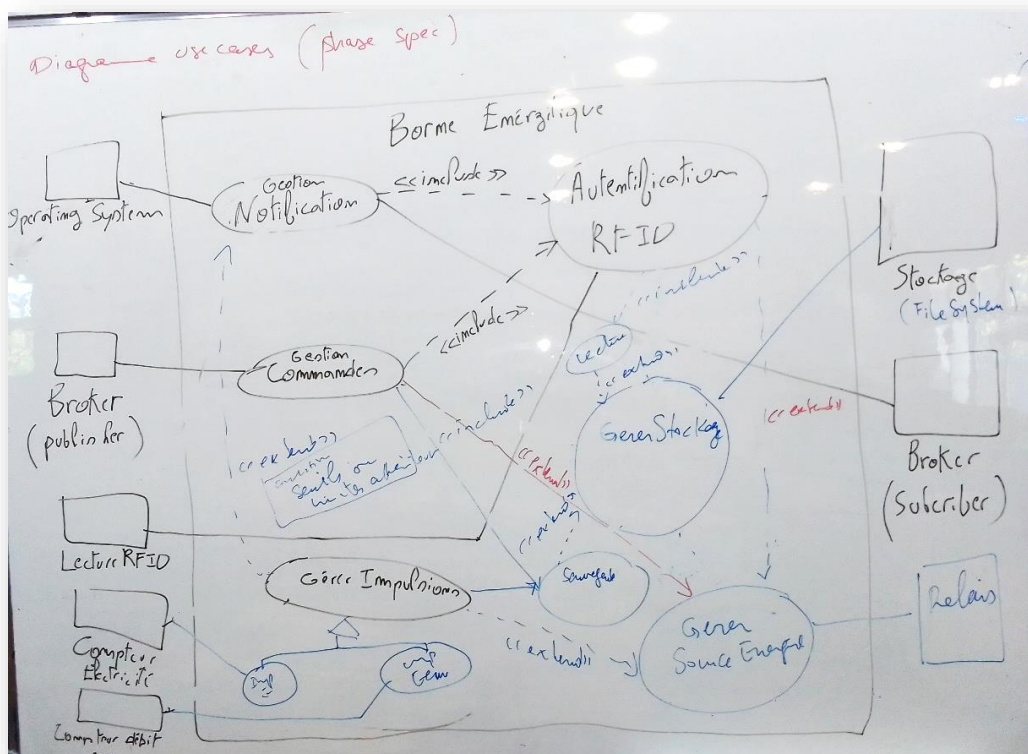 Diagramme use cases (phase spec)
Borme Emérgitique
Operating System
Gestion
Notification
<<include>>
Autentification
RFID
Stockage
(File System)
Broker
(publisher)
Gestion
Commandes
<<include>>
<<include>>
Lecture
<<extend>>
Gerer Stockage
<<extend>>
Broker
(Subcriber)
<<extend>>
Seuils ou
<<include>>
<<extend>>
<<extend>>
Lecture RFID
Gérer Impulsions
Sauvegarde
Compteur
Electricité
Imp
Imp
<<extend>>
Gerer
Source Energie
Relais
Compteur débit